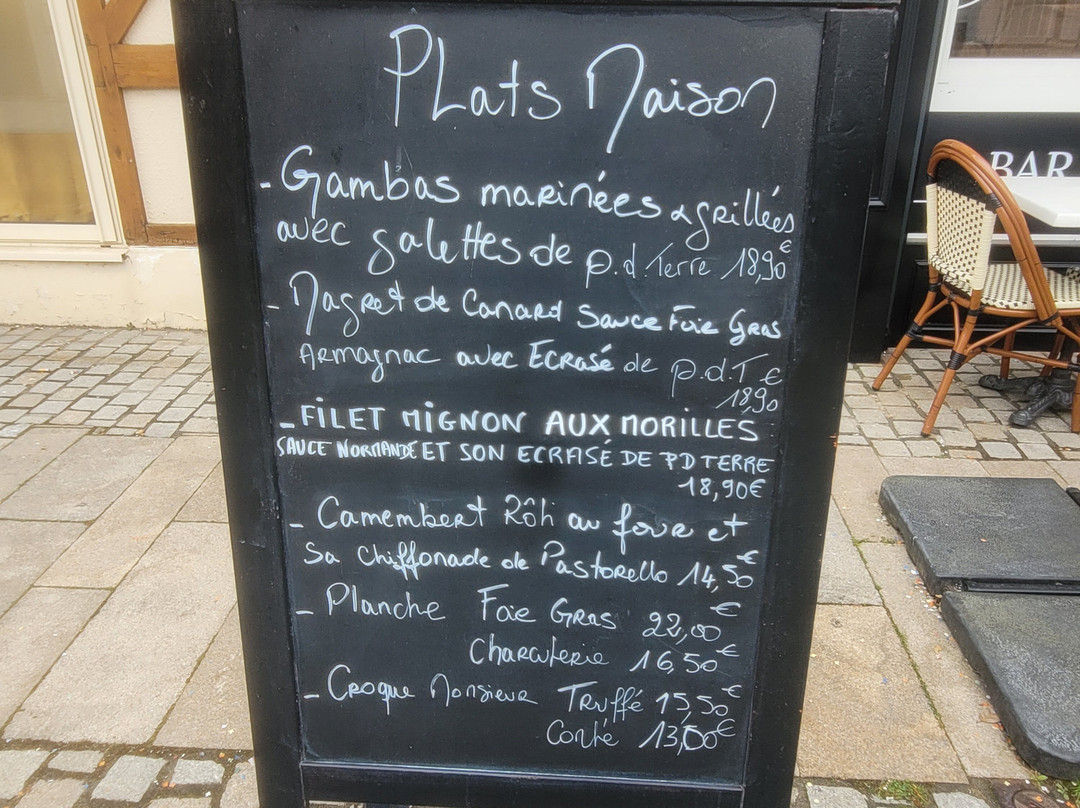 PLats Maison
- Gambas marinées & grillées
avec galettes de p.d.Terre 18,90€
- Magret de Canard Sauce Foie Gras
Armagnac avec Ecrasé de p.d.T
18,90 €
- FILET MIGNON AUX MORILLES
SAUCE NORMANDE ET SON ECRASÉ DE PD TERRE
18,90€
- Camembert Rôti au four et
Sa Chiffonade de Pastorello 14,50€
- Planche Foie Gras 22,00€
Charcuterie 16,50€
- Croque Monsieur Truffé 15,50€
Comté 13,00€
BAR